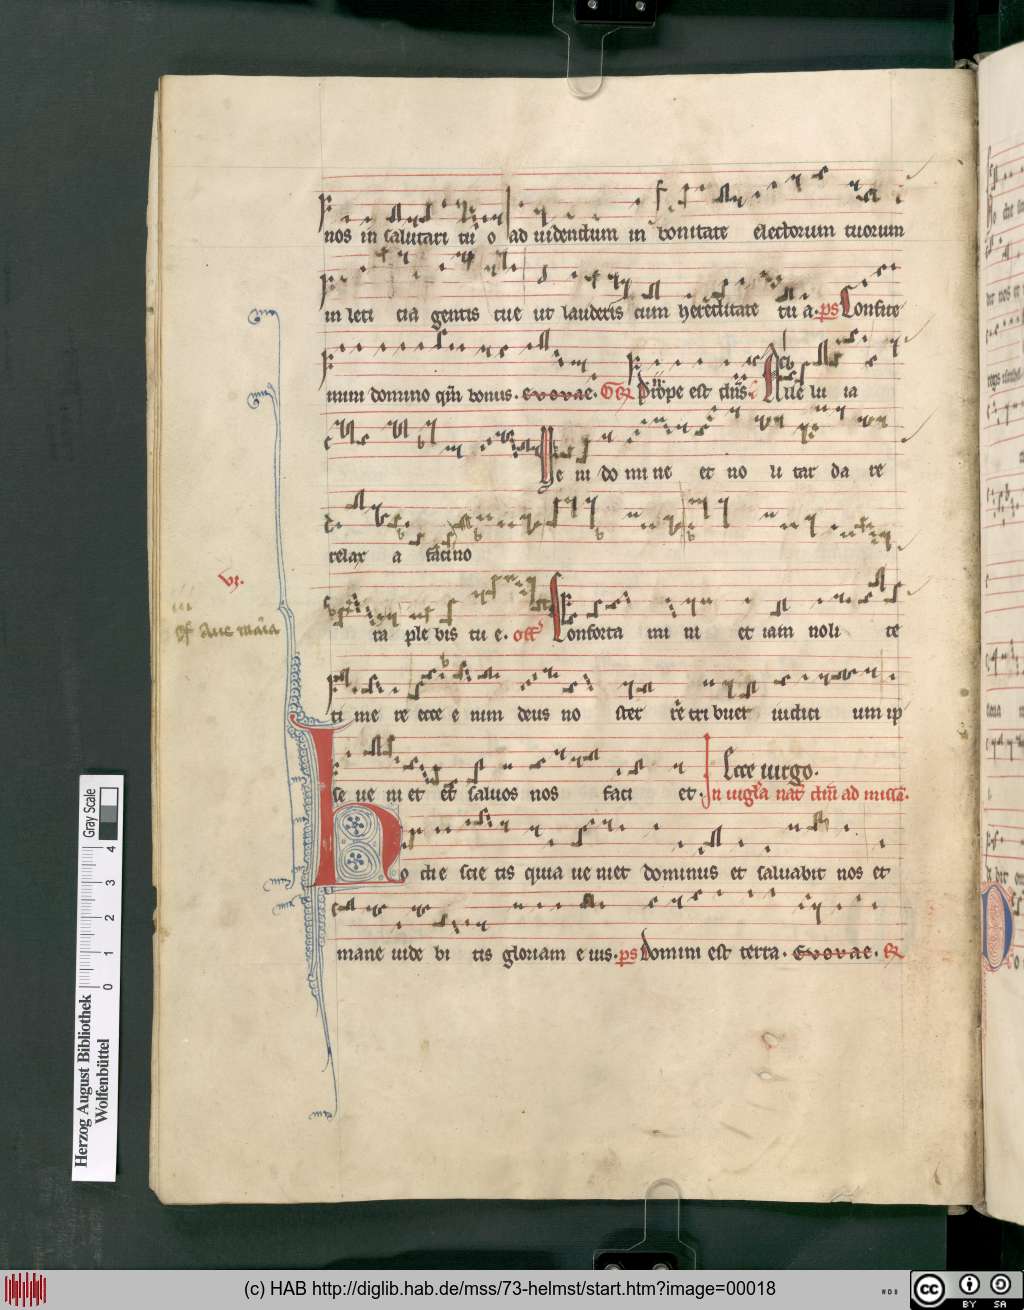 nos in salutari tu o ad uidendum in bonitate electorum tuorum
in leti cia gentis tue ut lauderis cum hereditate tu a. ps Confite
mini domino qm bonus. evovae. Prope est dns Alle lu ia
Ue ni do mi ne et no li tar da re
relax a facino
vs.
Aue maria
ra ple bis tu e. off Conforta mi ni et iam noli te
ti me re ecce e nim deus no ster re tri buet iudici um ip
Ecce uirgo.
se ue ni et et saluos nos faci et. In uigla nat dni ad missa.
Ho die scie tis quia ue niet dominus et saluabit nos et
mane uide bi tis gloriam e ius. ps Domini est terra. evovae.
Herzog August Bibliothek
Wolfenbüttel
0 1 2 3 4
Gray Scale
(c) HAB http://diglib.hab.de/mss/73-helmst/start.htm?image=00018
CC BY SA